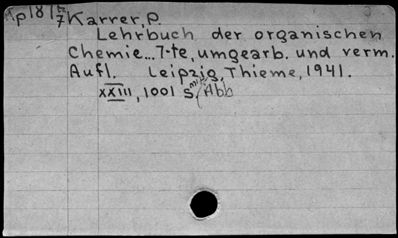 Ap181 5/7 Karrer, P.
Lehrbuch der organischen
Chemie... 7-te, umgearb. und verm.
Aufl. Leipzig, Thieme, 1941.
XXIII, 1001 S. mit Abb